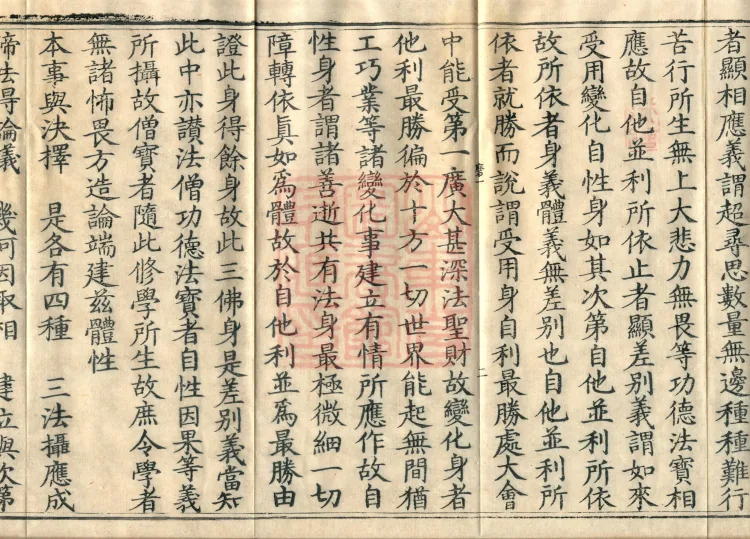 者顯相應義謂超尋思數量無邊種種難行
苦行所生無上大悲力無畏等功德法寶相
應故自他並利所依止者顯差別義謂如來
受用變化自性身如其次第自他並利所依
故所依者身義體義無差別也自他並利所
依者就勝而說謂受用身自利最勝處大會
中能受第一廣大甚深法聖財故變化身者
他利最勝徧於十方一切世界能起無間猶
工巧業等諸變化事建立有情所應作故自
性身者謂諸善逝共有法身最極微細一切
障轉依眞如爲體故於自他利並爲最勝由
證此身得餘身故此三佛身是差別義當知
此中亦讃法僧功德法寶者自性因果等義
所攝故僧寶者隨此修學所生故庶令學者
無諸怖畏方造論端建兹體性
本事與決擇　是各有四種　三法攝應成
諦法得論議　幾何因取相　建立與次第